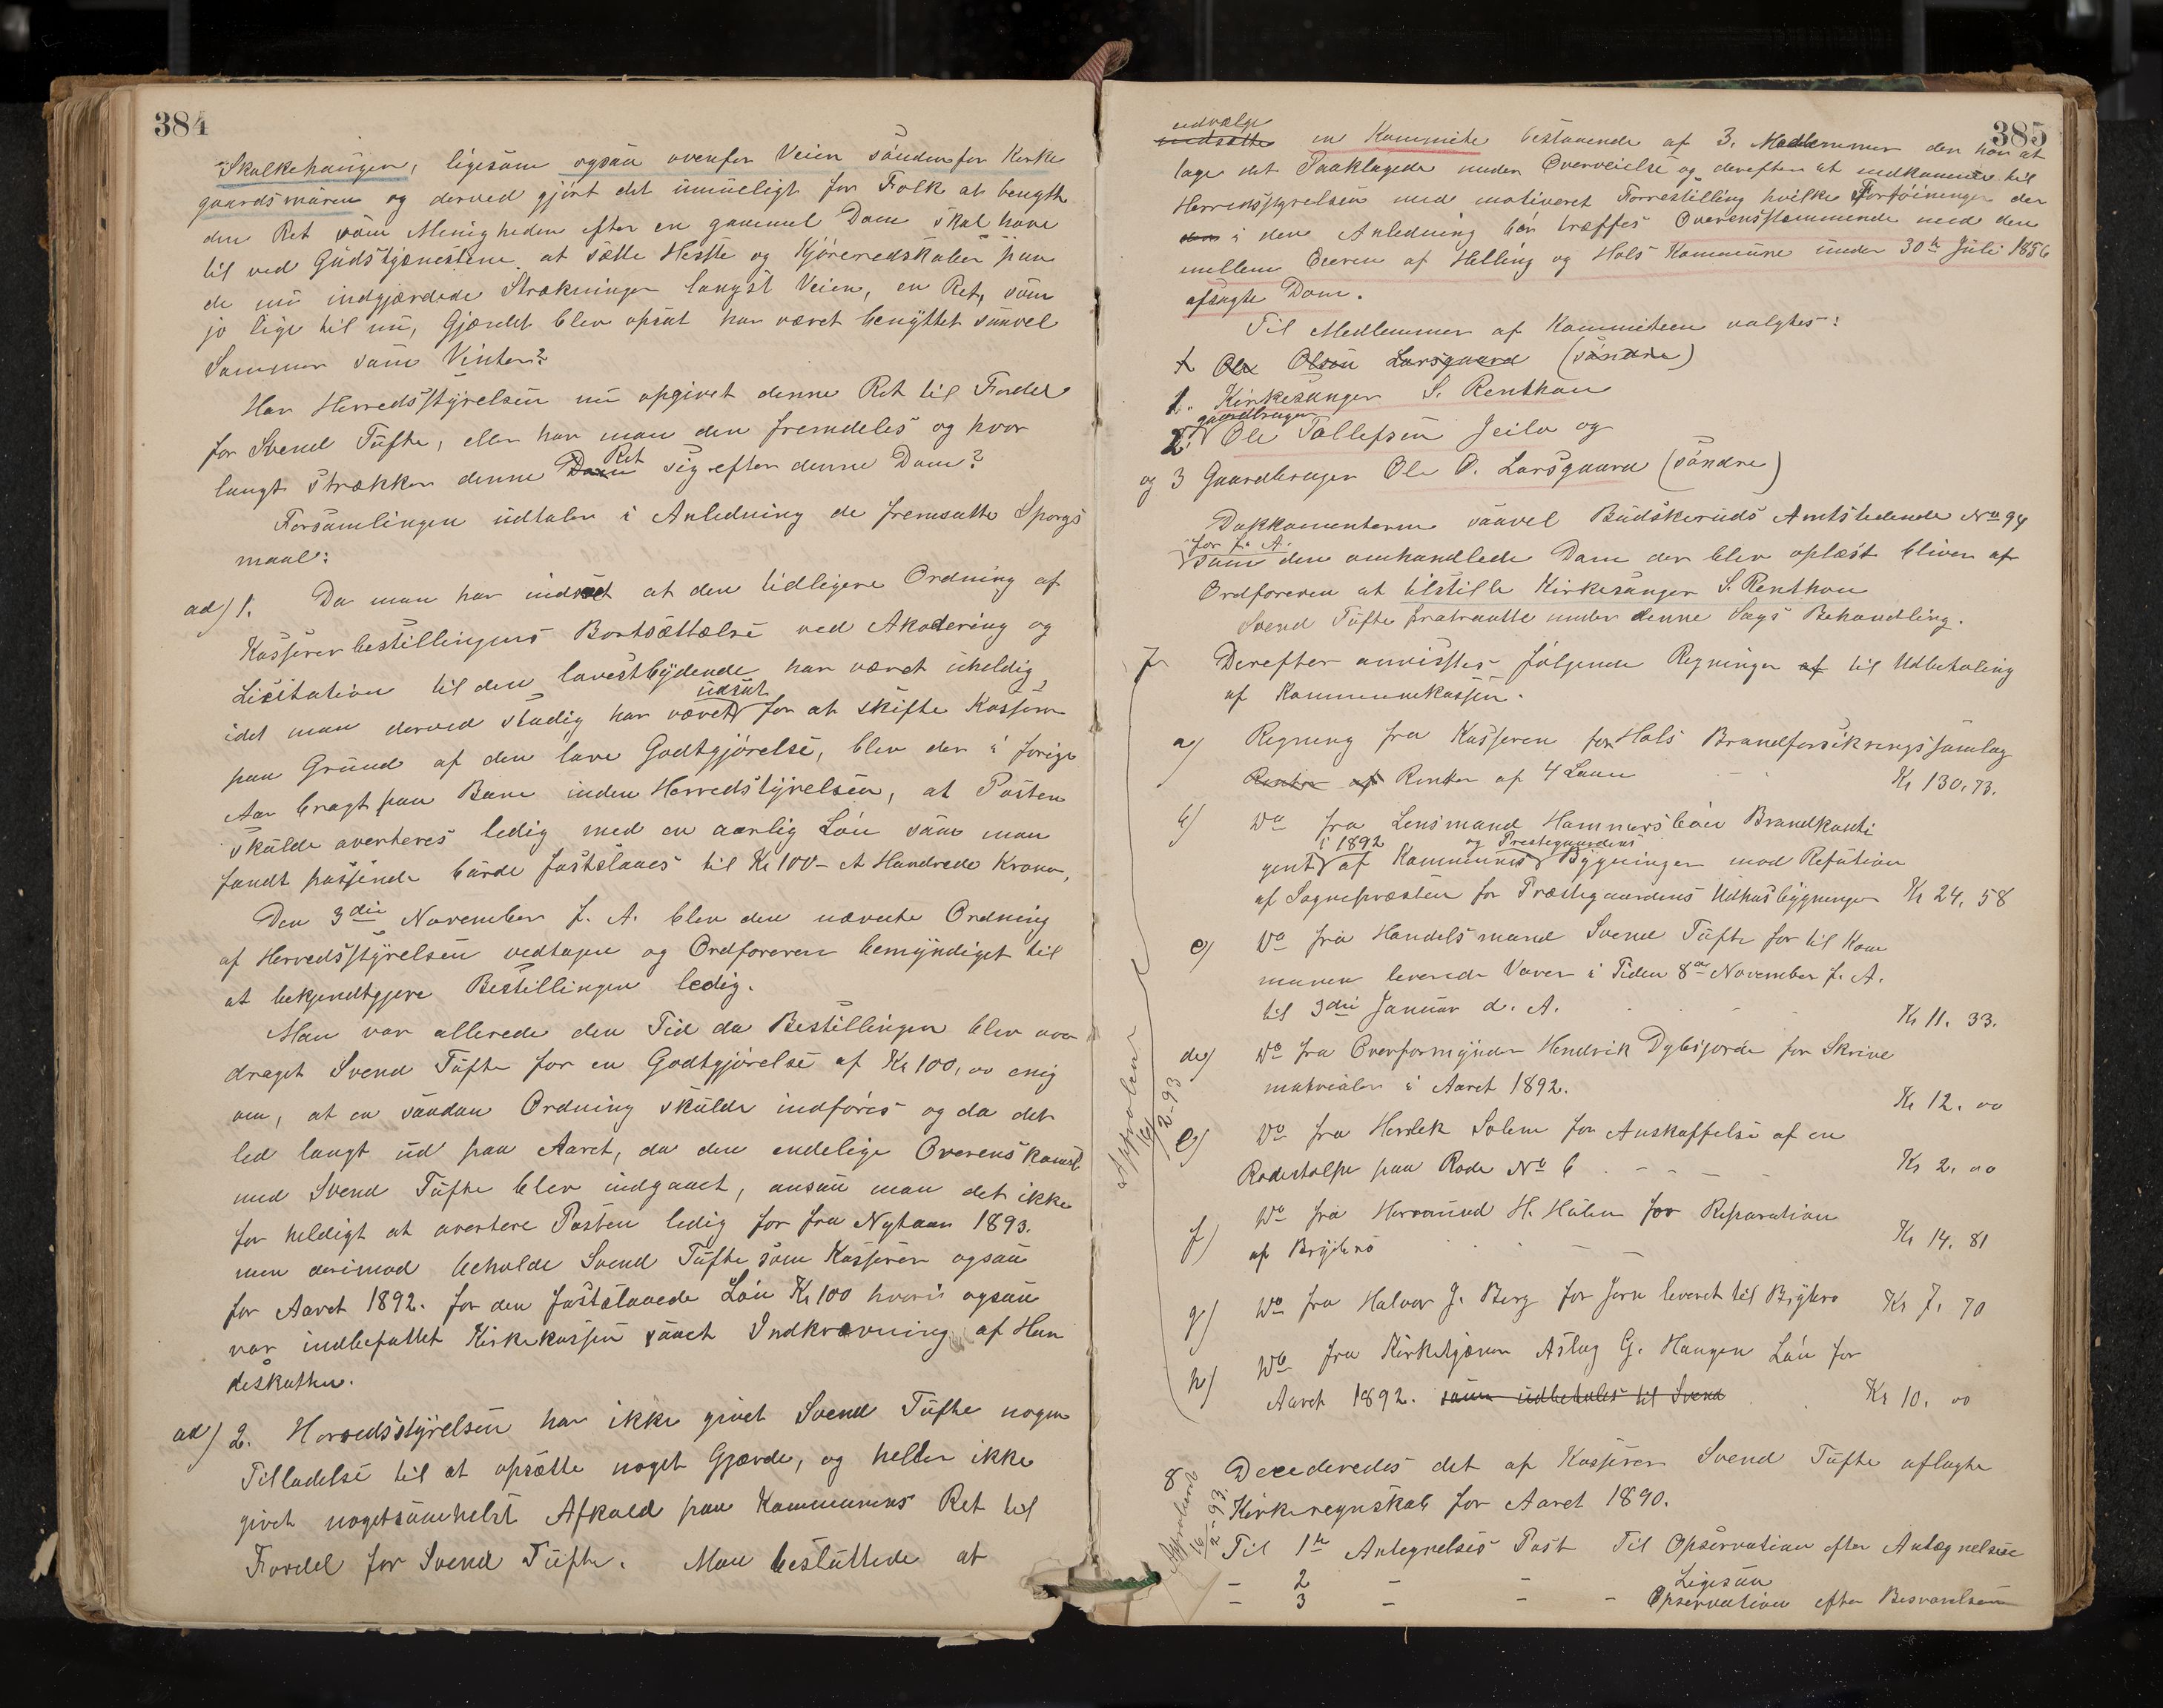 384
Skolkehaugen, ligesom ogsaa ovenfor Veien sønden for Kirke
gaardsmuren og derved gjort det umueligt for Folk at benytte
den Ret som Menigheden efter en gammel Dom skal have
til ved Gudstjenesterne at sætte Heste og Kjøreredskaber paa
de nu indgjærdede Strækninger langst Veien, en Ret, som
jo lige til nu, Gjærdet blev opsat har været benyttet saavel
Sommer som Vinter?
Har Herredsstyrelsen nu opgivet denne Ret til Fordel
for Svend Tufte, eller har man den fremdeles og hvor
Ret
langt strækker denne Dom sig efter denne Dom?
Forsamlingen udtaler i Anledning de fremsatte Spørgs
maal:
ad) 1. Da man har indseet at den tidligere Ordning af
Kasserer bestillingens Bortsættelse ved Akodering og
Lisitation til den lavestbydende har været uheldig,
udsat
idet man derved stadig har været for at skifte Kasserer
paa Grund af den lave Godtgjørelse, blev der i forige
Aar bragt paa Bane inden Herredstyrelsen, at Posten
skulde averteres ledig med en aarlig Løn som man
fandt passende burde fastslaaes til Kr 100 - Et Hundrede Kroner,
Den 3die November f. A. blev den nævnte Ordning
af Herredsstyrelsen vedtagen og Ordføreren bemyndiget til
at bekjendtgjøre Bestillingen ledig.
Man var allerede den Tid da Bestillingen blev over
draget Svend Tufte for en Godtgjørelse af Kr 100,00 enig
om, at en saadan Ordning skulde indføres og da det
led langt ud paa Aaret, da den endelige Overenskomst
med Svend Tufte blev indgaaet, ansaa man det ikke
for heldigt at avertere Posten ledig før fra Nytaar 1893.
men derimod beholde Svend Tufte som Kasserer ogsaa
for Aaret 1892. for den fastslaaede Løn Kr 100 hvori ogsaa
var indbefattet Kirkekassen saavt Indkrævning af Hun
deskatten.
ad) 2. Herredsstyrelsen har ikke givet Svend Tufte nogen
Tilladelse til at opsætte noget Gjærde, og heller ikke
givet nogetsomhelst Afkald paa Kommunens Ret til
Fordel for Svend Tufte. Man besluttede at
385
udvælge
nedsætte en Kommite bestaaende af 3. Medlemmer der har at
tage det Paaklagede under Overveielse og derefter at indkomme til
Herredsstyrelsen med motiveret Forrestilling hvilke Forføininger der
i den Anledning bør træffes Overensstemmende med den
mellem Eieren af Helling og Hols Kommune under 30te Juli 1856
afsagte Dom.
Til Medlemmer af Kommiteen valgtes:
1 Ole Olsen Larsgaard (søndre)
1. Kirkesanger S. Renthon
gaardbruger
2. Ole Tollefsen Jeilo og
og 3 Gaardbruger Ole O. Larsgaard (søndre)
Dokkomenterne saavel Budskeruds Amtstidende No 94
for f. A.
som den omhandlede Dom der blev oplæst bliver af
Ordføreren at tilstille Kirkesanger S. Renthon
Svend Tufte fratraatte under denne Sags Behandling.
7 Derefter anvisstes følgende Regninger af til Udbetaling
af Kommunekassen.
a) Regning fra Kasseren for Hols Brandforsikringsamlag
Renter af Renter af 4 Laan Kr 130,73.
b) Do fra Lensmand Hammersbøen Brandkonti
i 1892 og Prestegaardens
gent af Kommunes Bygninger mod Refution
af Sognepræsten for Præstegaardens Udhusbygninger Kr 24,58
c) Do fra Handelsmand Svend Tufte for til Kom
munen leverede Varer i Tiden 8de November f. A.
til 3die Januar d. A. Kr 11. 33.
de) Do fra Overformynder Hendrik Dybsjorde for Skrive
matrialer i Aaret 1892. Kr 12. 00
e) Do fra Herlek Solem for Anskaffelse af en
Rodestolpe paa Rode No 6 Kr 2. 00
f) Do fra Hermund H. Hølen for Reparation
af Brybro Kr 14. 81
g) Do fra Halvor J. Berg for Jern leveret til Brybro Kr 7, 70
h) Do fra Kirketjæner Aslag G. Haugen Løn for
Aaret 1892. som udbetales til Svend Kr 10. 00
Approberes
16/2-93
8 Deciderede det af Kasserer Svend Tufte aflagte
Kirkeregnskab for Aaret 1890.
Approberes
16/2-93.
Til 1te Antegnelses Post Til Opservation efter Antægnelsen
- 2 - - Ligesaa
- 3 - - - Opservation efter Besvarelsen